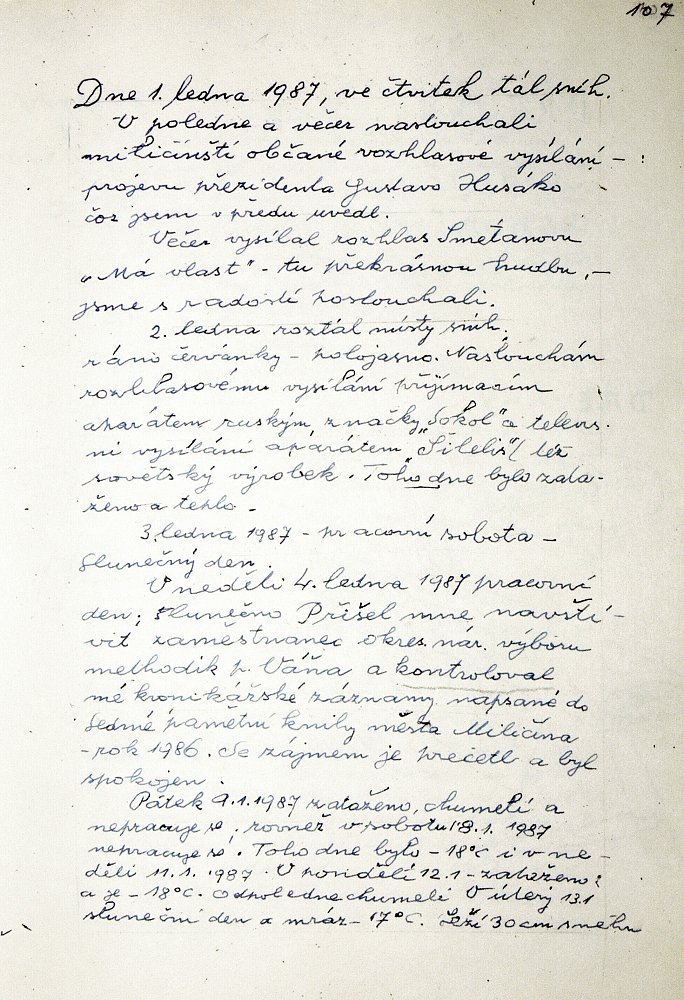 107
Dne 1. ledna 1987, ve čtvrtek tál sníh.
V poledne a večer naslouchali
miličínští občané rozhlasové vysílání –
projevu prezidenta Gustavo Husáko
což jsem v předu uvedl.
Večer vysílal rozhlas Smetanovu
„Má vlast" - tu překrásnou hudbu, –
jsme s radostí poslouchali.
2. ledna roztál místy sníh,
ráno červánky – polojasno. Naslouchám
rozhlasovému vysílání přijímacím
aparátem ruským, značky „Sokol" a televis.
ní vysílání aparátem „Silelis" (též
sovětský výrobek. Toho dne bylo zata-
ženo a teplo.
3 ledna 1987 - pracovní sobota –
slunečný den.
V neděli 4. ledna 1987 pracovní
den; slunečno Přišel mne navští-
vit zaměstnanec okres. nár. výboru
methodik p. Váňa a kontroloval
mé kronikářské záznamy napsané do
sedmé pamětní knihy města Miličína
- rok 1986. Se zájmem je přečetl a byl
spokojen.
Pátek 9.1.1987 zataženo, chumelí a
nepracuje se, rovněž v sobotu 1987
nepracuje se. Toho dne bylo – 18°C i v ne-
děli 11.1.1987. V pondělí 12.1 - zataženo;
a je – 18°C. odpoledne chumelí V úterý 13.1
sluneční den a mráz – 17°C. Leží 30 cm sněhu